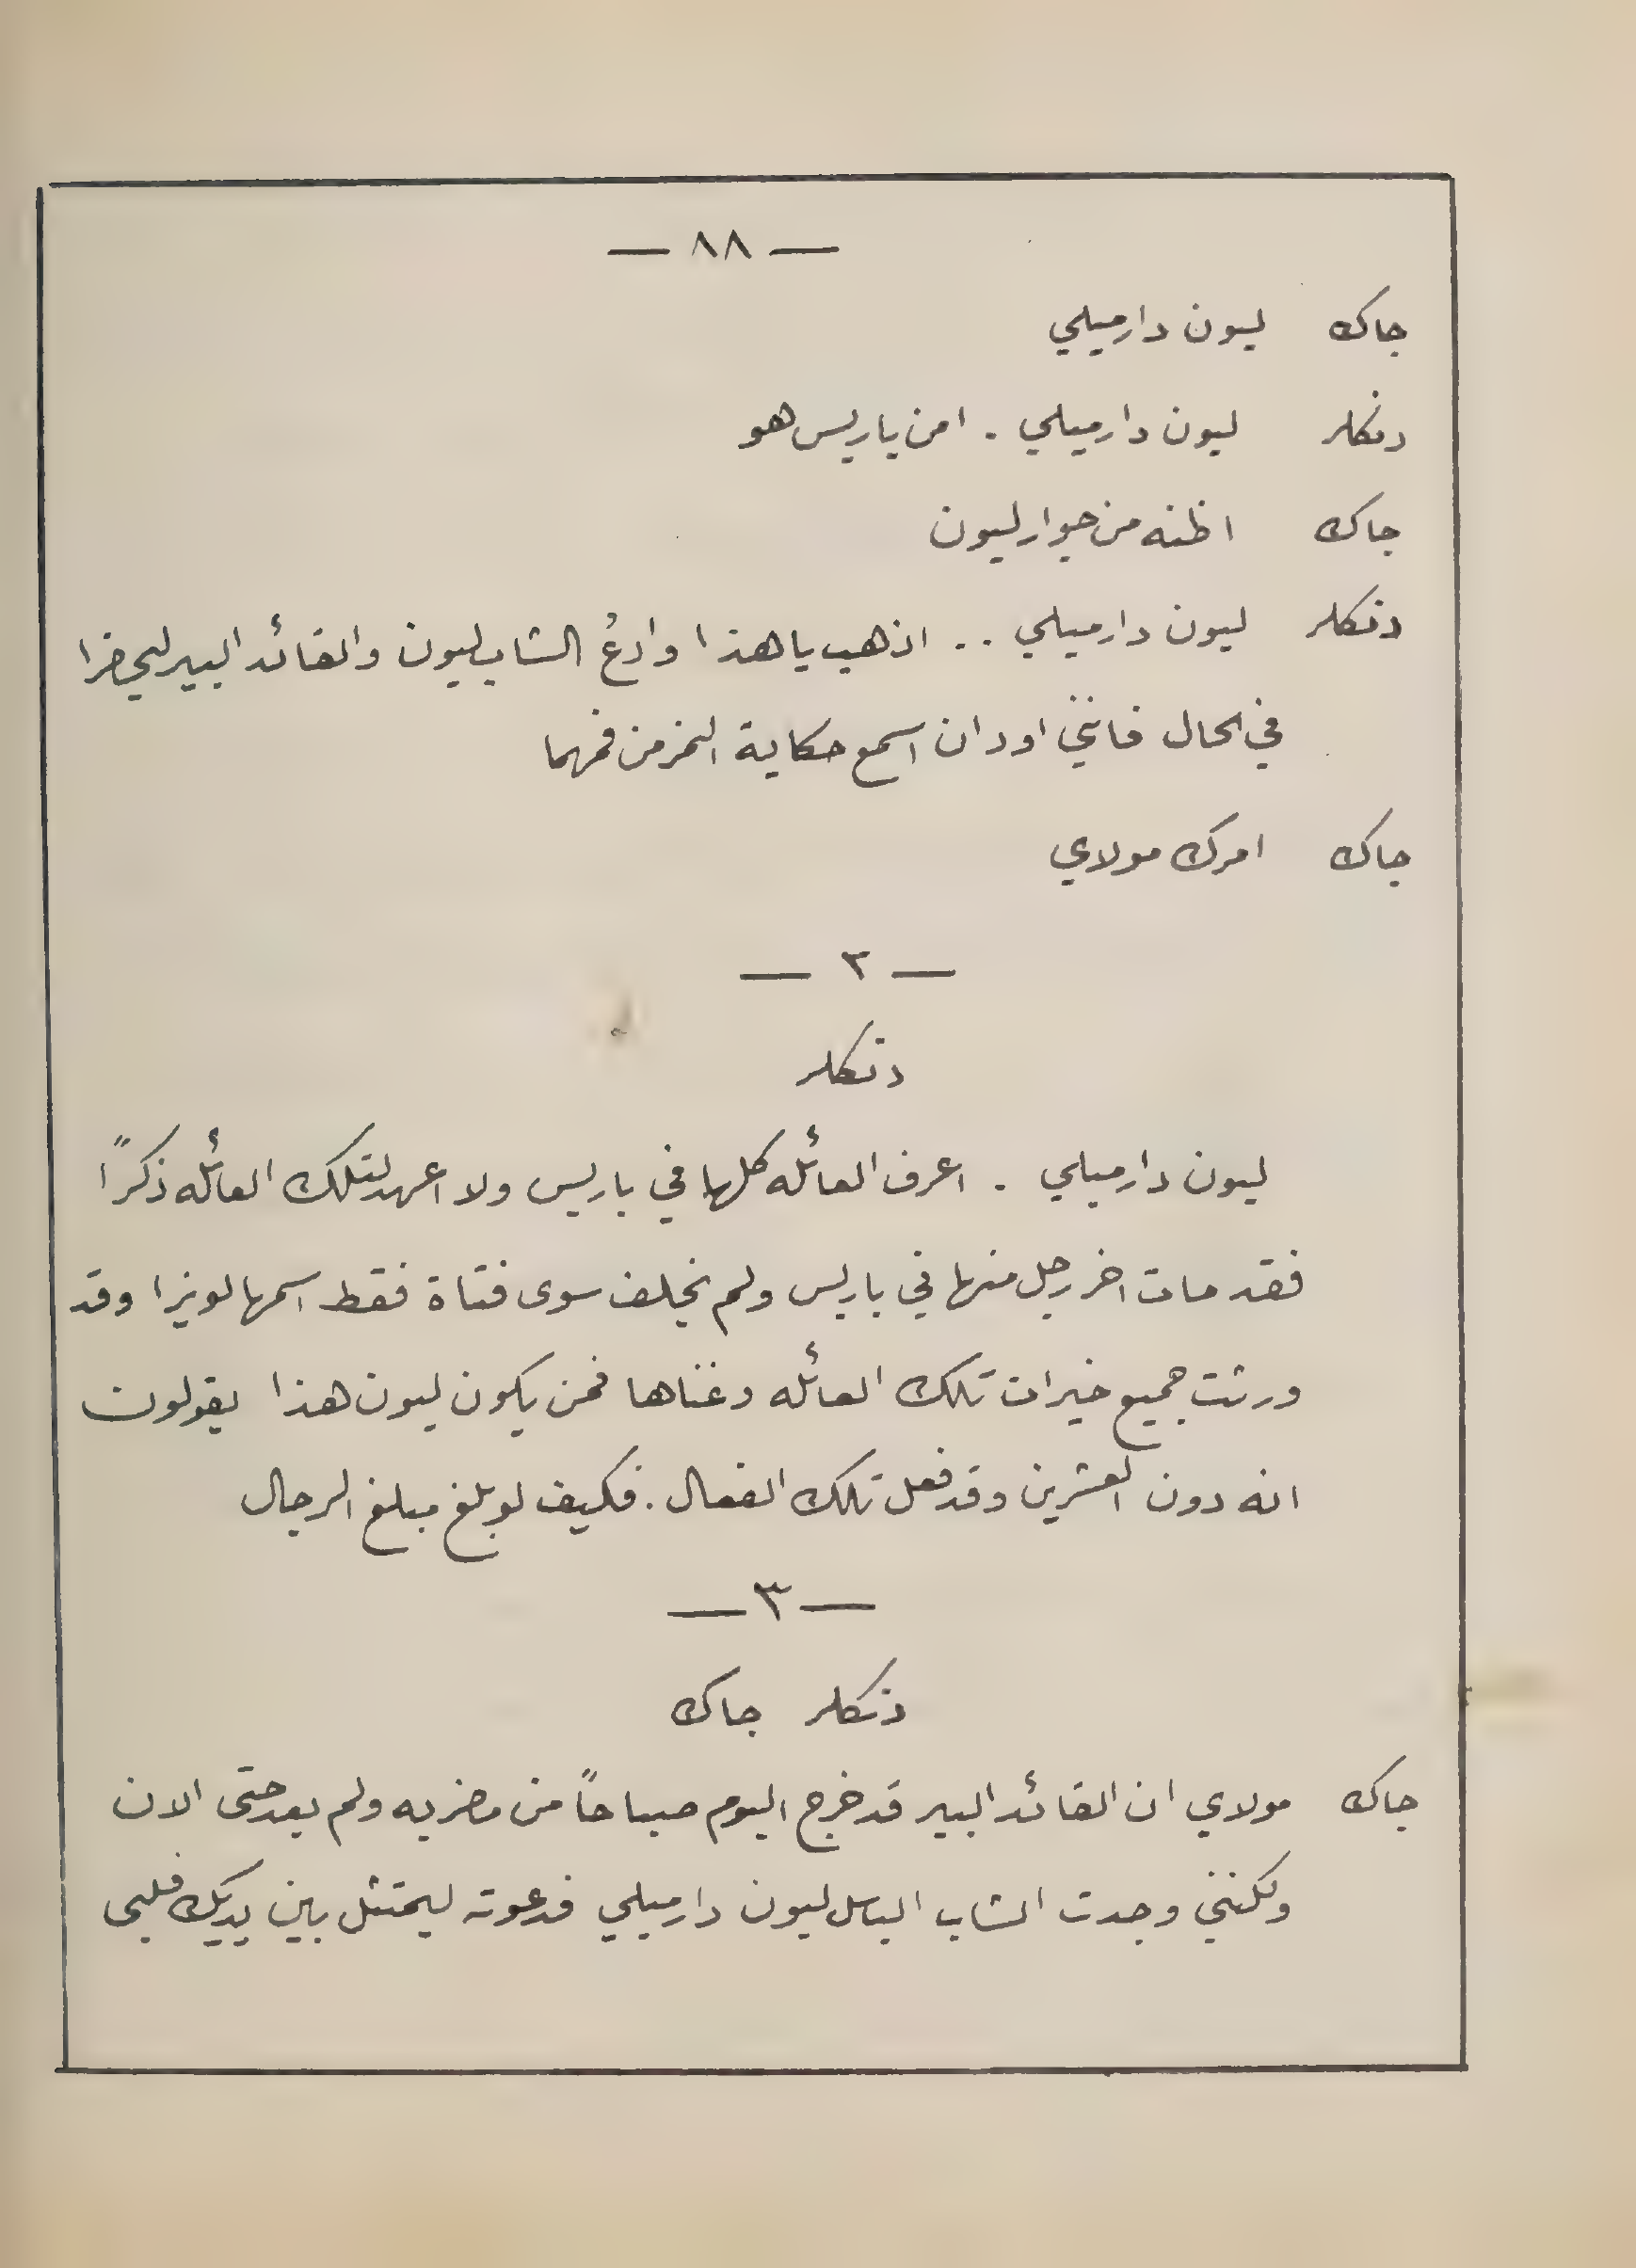 — ٨٨ —
جاك ليون دارميلي
دنكلر ليون دارميلي . امن باريس هو
جاك اظنه من جوار ليون
دنكلر ليون دارميلي .. اذهب يا هذا وادعُ الشاب ليون والقائد البير ليحضرا
في الحال فانني اود ان اسمع حكاية النمر من فمهما
جاك امرك مولاي
— ٢ —
دنكلر
ليون دارميلي . اعرف العائله كلها في باريس ولا اعهد لتلك العائله ذكرًا
فقد مات اخر رجل منها في باريس ولم يخلف سوى فتاة فقط اسمها لويزا وقد
ورثت جميع خيرات تلك العائله وغناها فمن يكون ليون هذا يقولون
انه دون العشرين وقد فعل تلك الفعال . فكيف لو بلغ مبلغ الرجال
— ٣ —
دنكلر جاك
جاك مولاي ان القائد البير قد خرج اليوم صباحاً من مضربه ولم يعد حتى الان
ولكنني وجدت الشاب الباسل ليون دارميلي فدعوته ليمتثل بين يديك فلبى